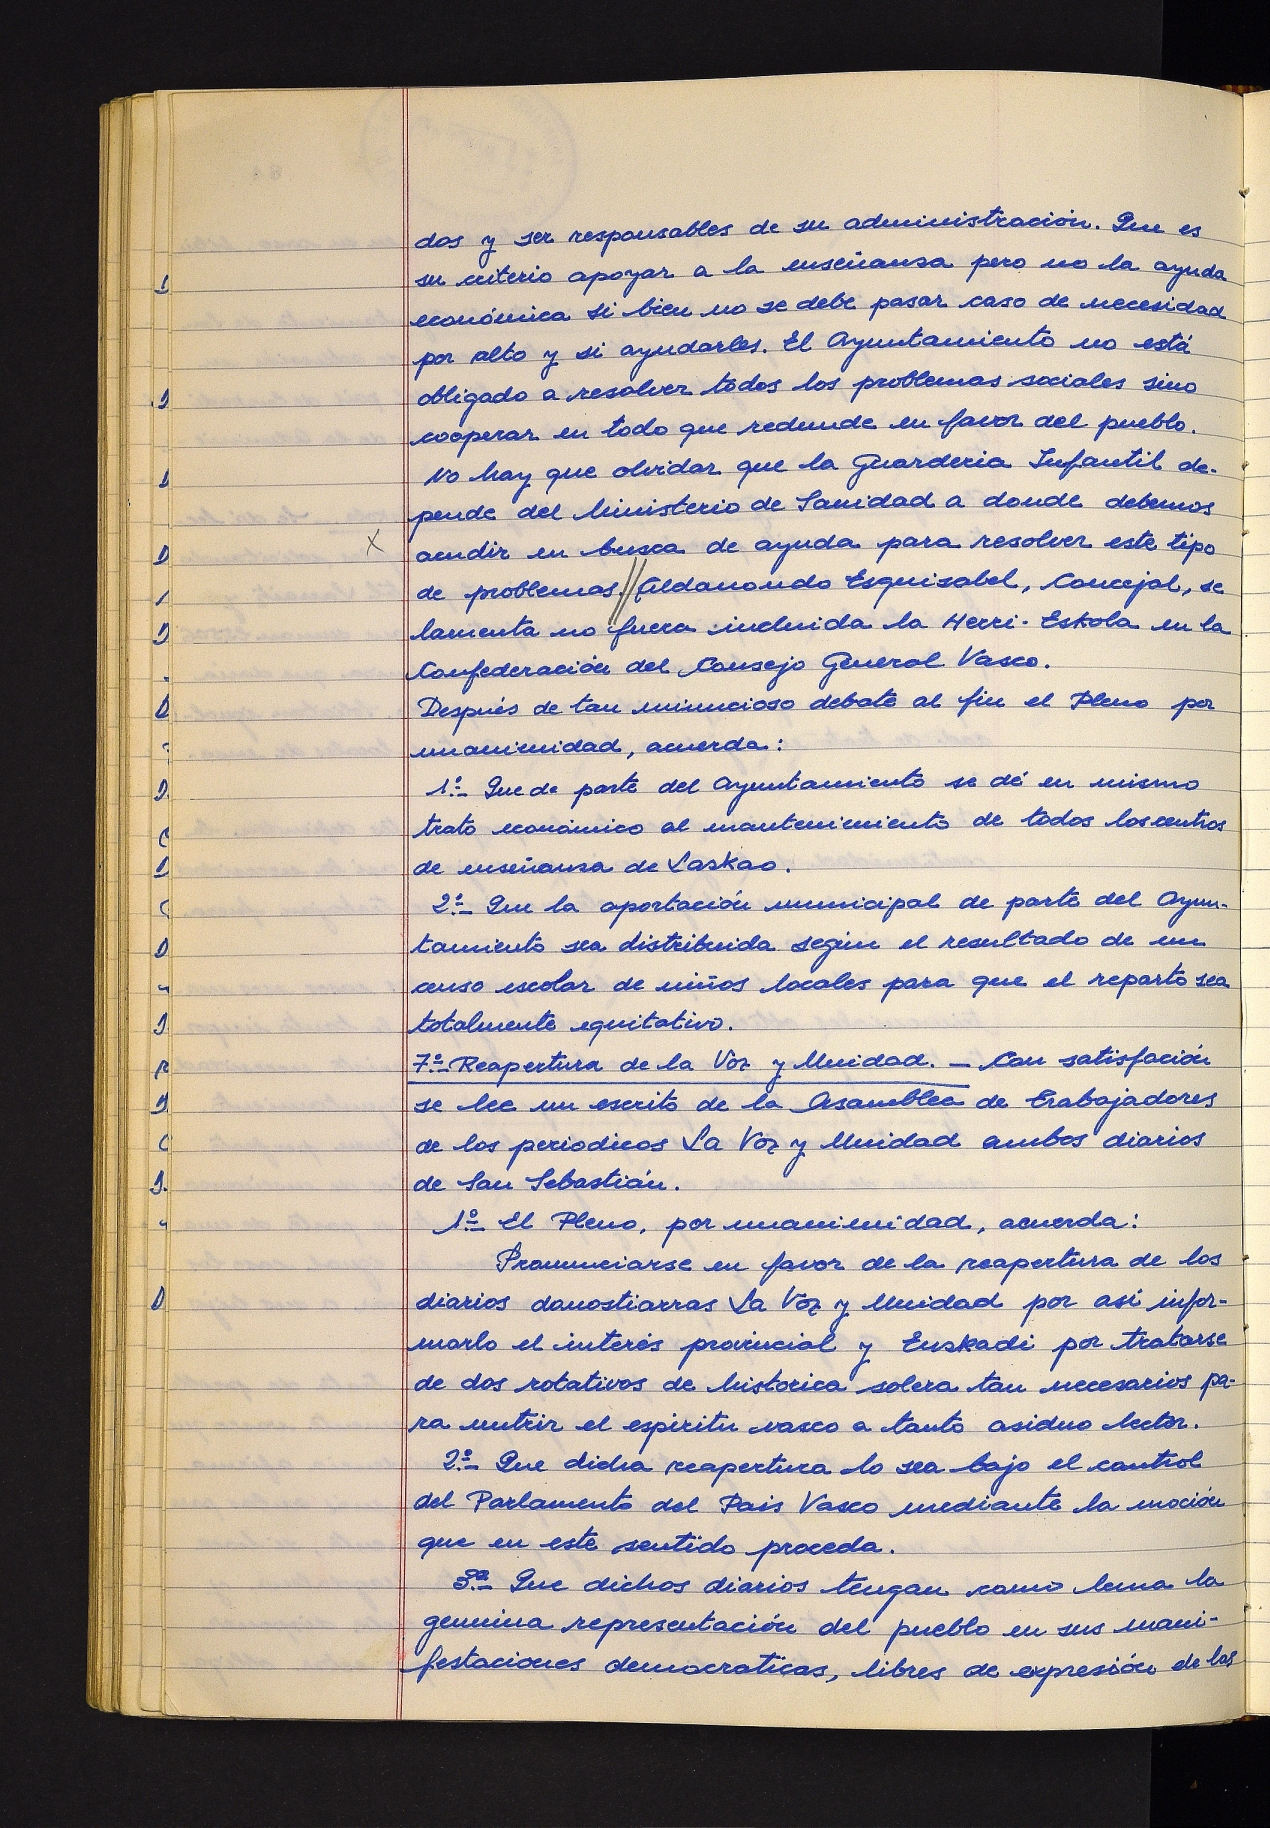 dos y ser responsables de su administración. Que es
su criterio apoyar a la enseñansa pero no la ayuda
económica si bien no se debe pasar caso de necesidad
por alto y si ayudarles. El Ayuntamiento no está
obligado a resolver todos los problemas sociales sino
cooperar en todo que redunde en favor del pueblo.
No hay que olvidar que la Guarderia Infantil de-
pende del Ministerio de Sanidad a donde debemos
acudir en busca de ayuda para resolver este tipo
de problemas.// Aldanondo Esquisabel, Concejal, se
lamenta no fuera incluida la Herri-Eskola en la
Confederación del Consejo General Vasco.
Después de tan minucioso debate al fin el Pleno por
unanimidad, acuerda:
1º.- Que de parte del Ayuntamiento se dé en mismo
trato económico al mantenimiento de todos los centros
de enseñansa de Laskao.
2º.- Que la aportación municipal de parte del Ayun-
tamiento sea distribuida según el resultado de un
censo escolar de niños locales para que el reparto sea
totalmente equitativo.
7º.- Reapertura de la Voz y Unidad. - Con satisfación
se lee un escrito de la Asamblea de Trabajadores
de los periodicos La Voz y Unidad ambos diarios
de San Sebastián.
1º.- El Pleno, por unanimidad, acuerda:
Pronunciarse en favor de la reapertura de los
diarios donostiarras La Voz y Unidad por asi infor-
marlo el interés provincial y Euskadi por tratarse
de dos rotativos de historica solera tan necesarios pa-
ra nutrir el espiritu vasco a tanto asiduo lector.
2º.- Que dicha reapertura lo sea bajo el control
del Parlamento del Pais Vasco mediante la moción
que en este sentido proceda.
3ª.- Que dichos diarios tengan como lema la
genuina representación del pueblo en sus mani-
festaciones democraticas, libres de expresión de las